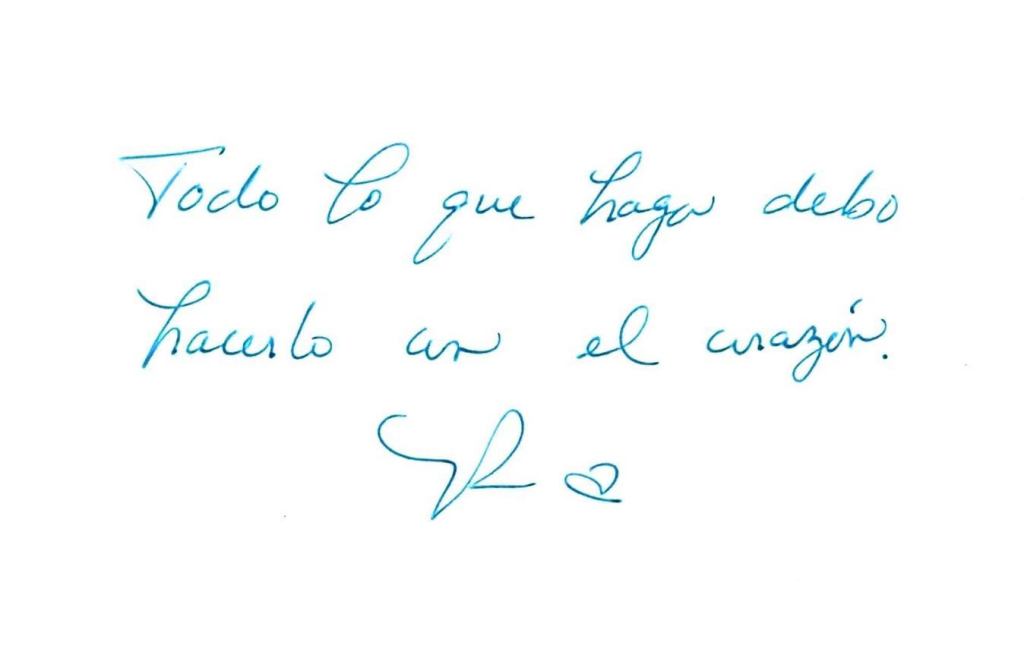 Todo lo que haga debo
hacerlo con el corazón.